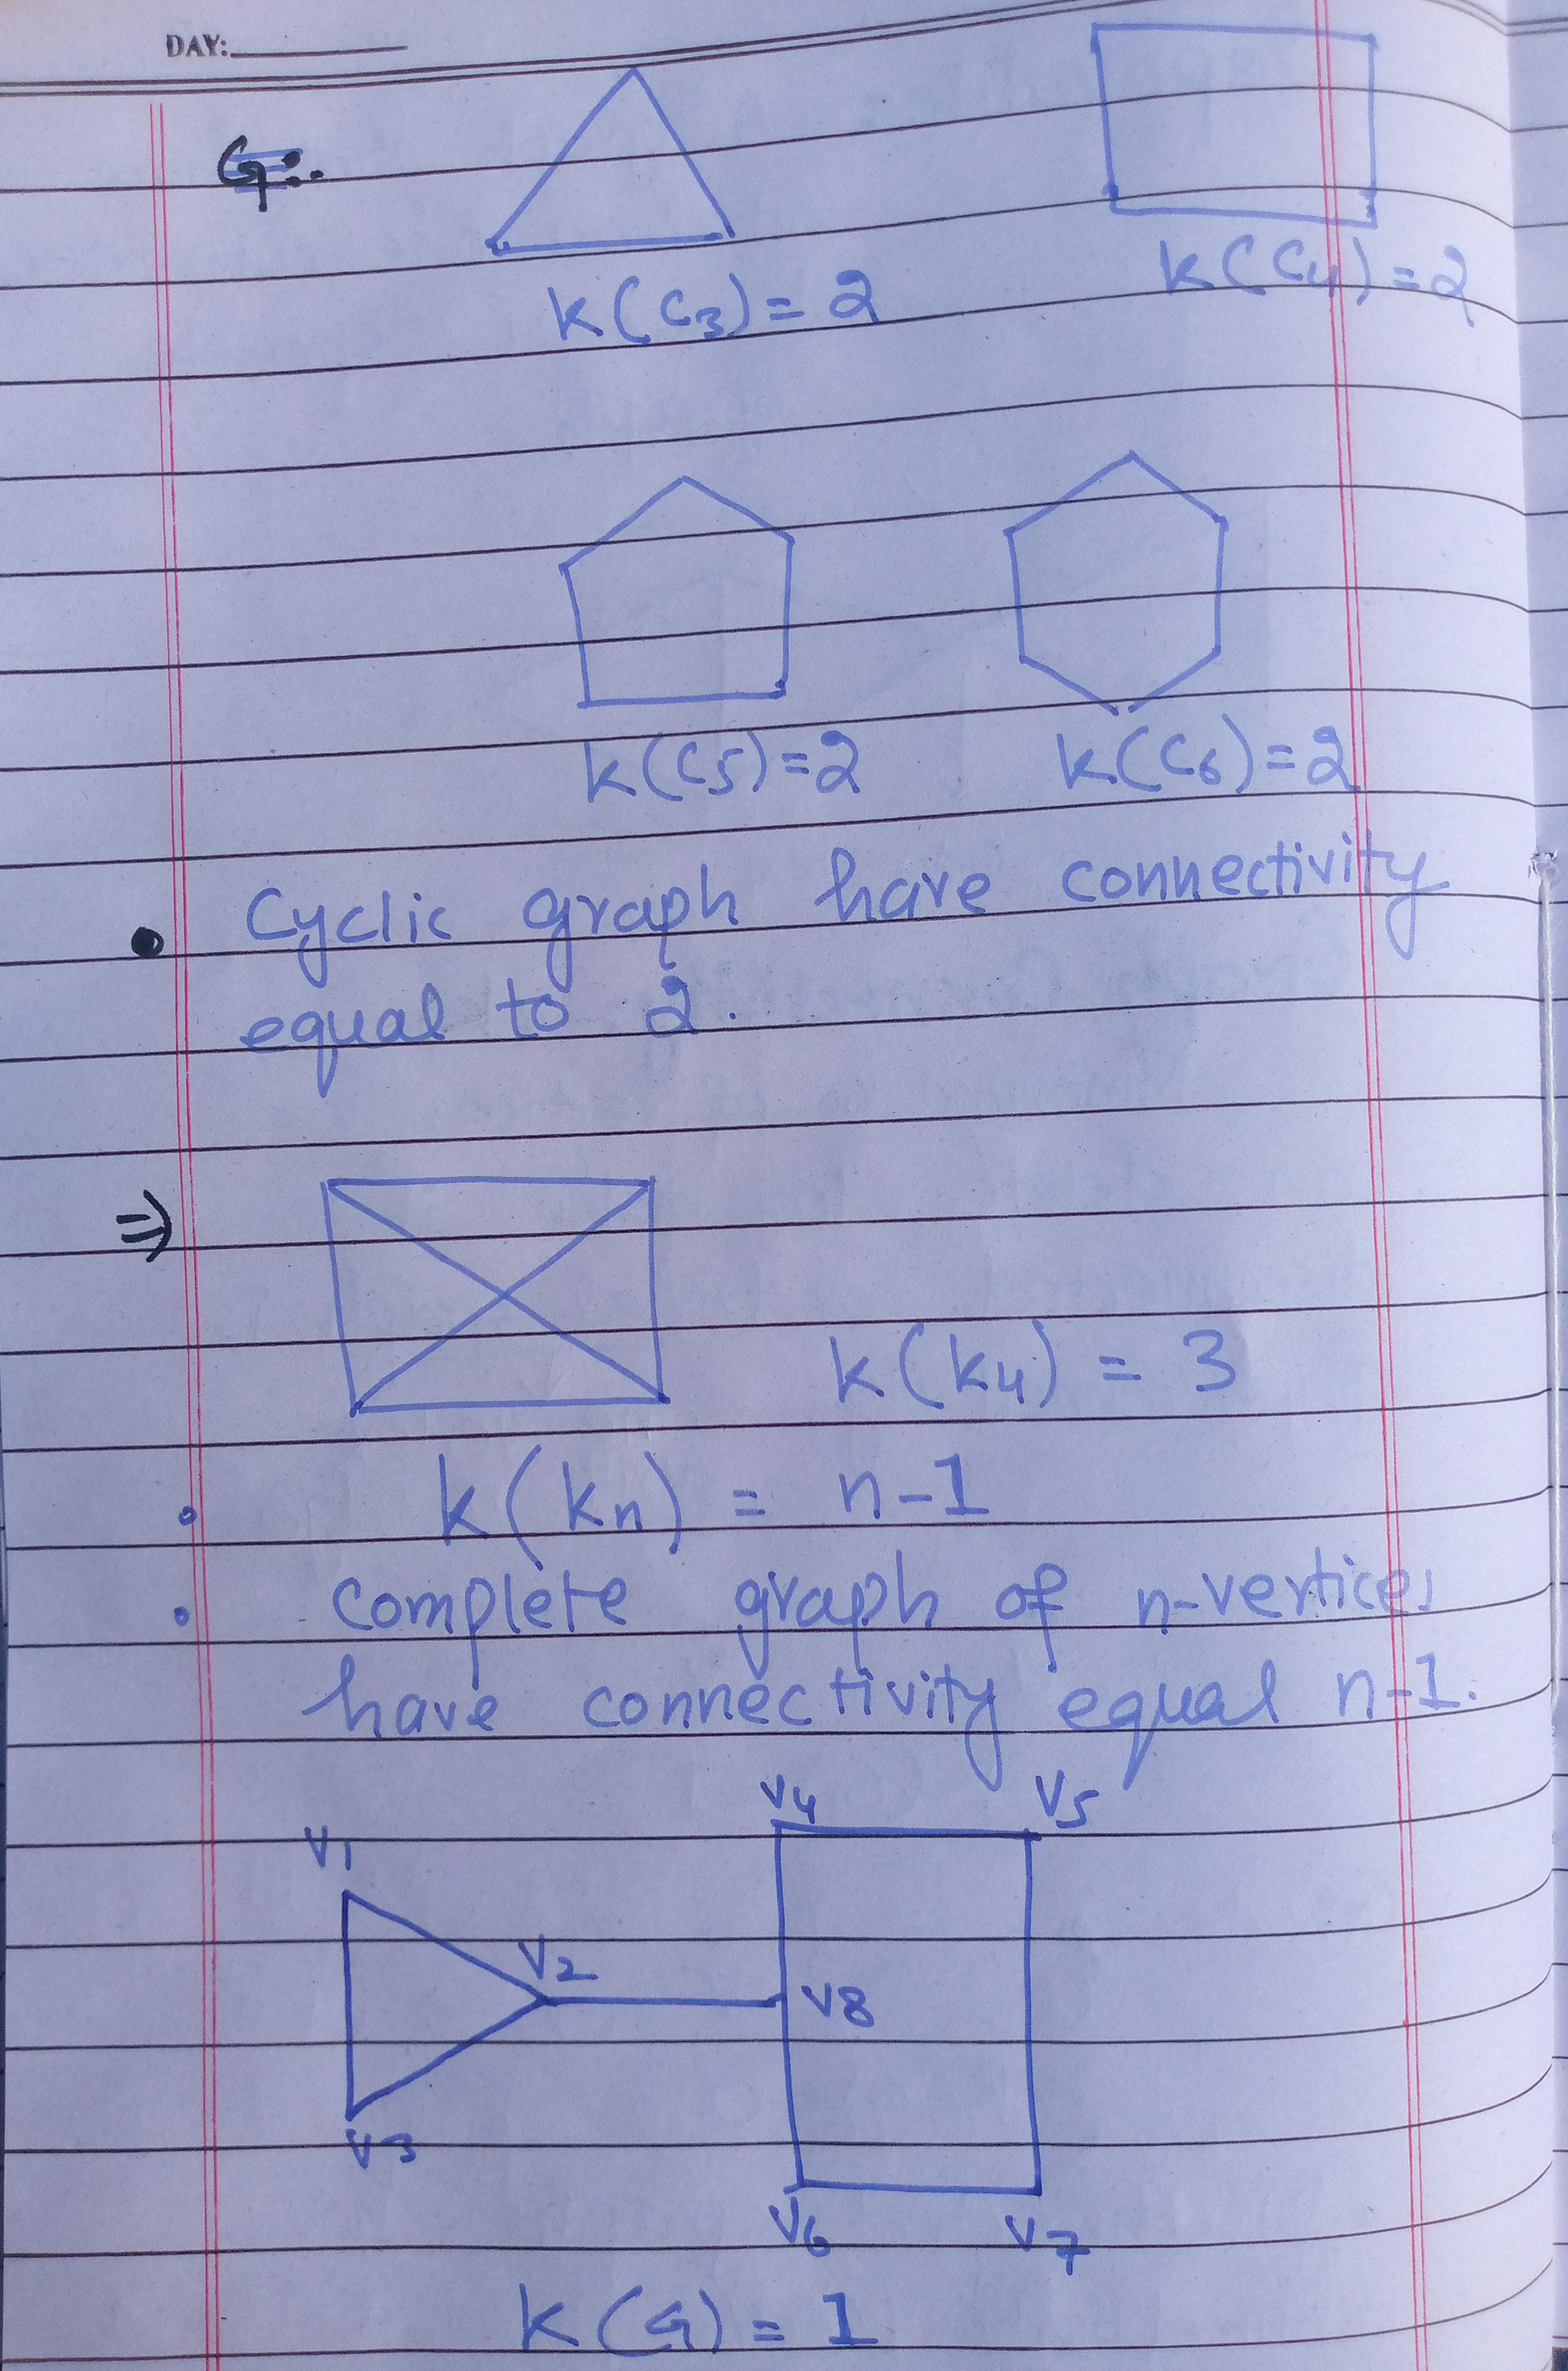 DAY:
G:.
k(C3) = 2
k(C4) = 2
k(C5) = 2
k(C6) = 2
• Cyclic graph have connectivity
equal to 2.
⇒
k(k4) = 3
∘ k(kn) = n-1
∘ complete graph of n-vertices
have connectivity equal n-1.
V4 V5
V1
V2
V8
V3
V6 V7
k(G) = 1